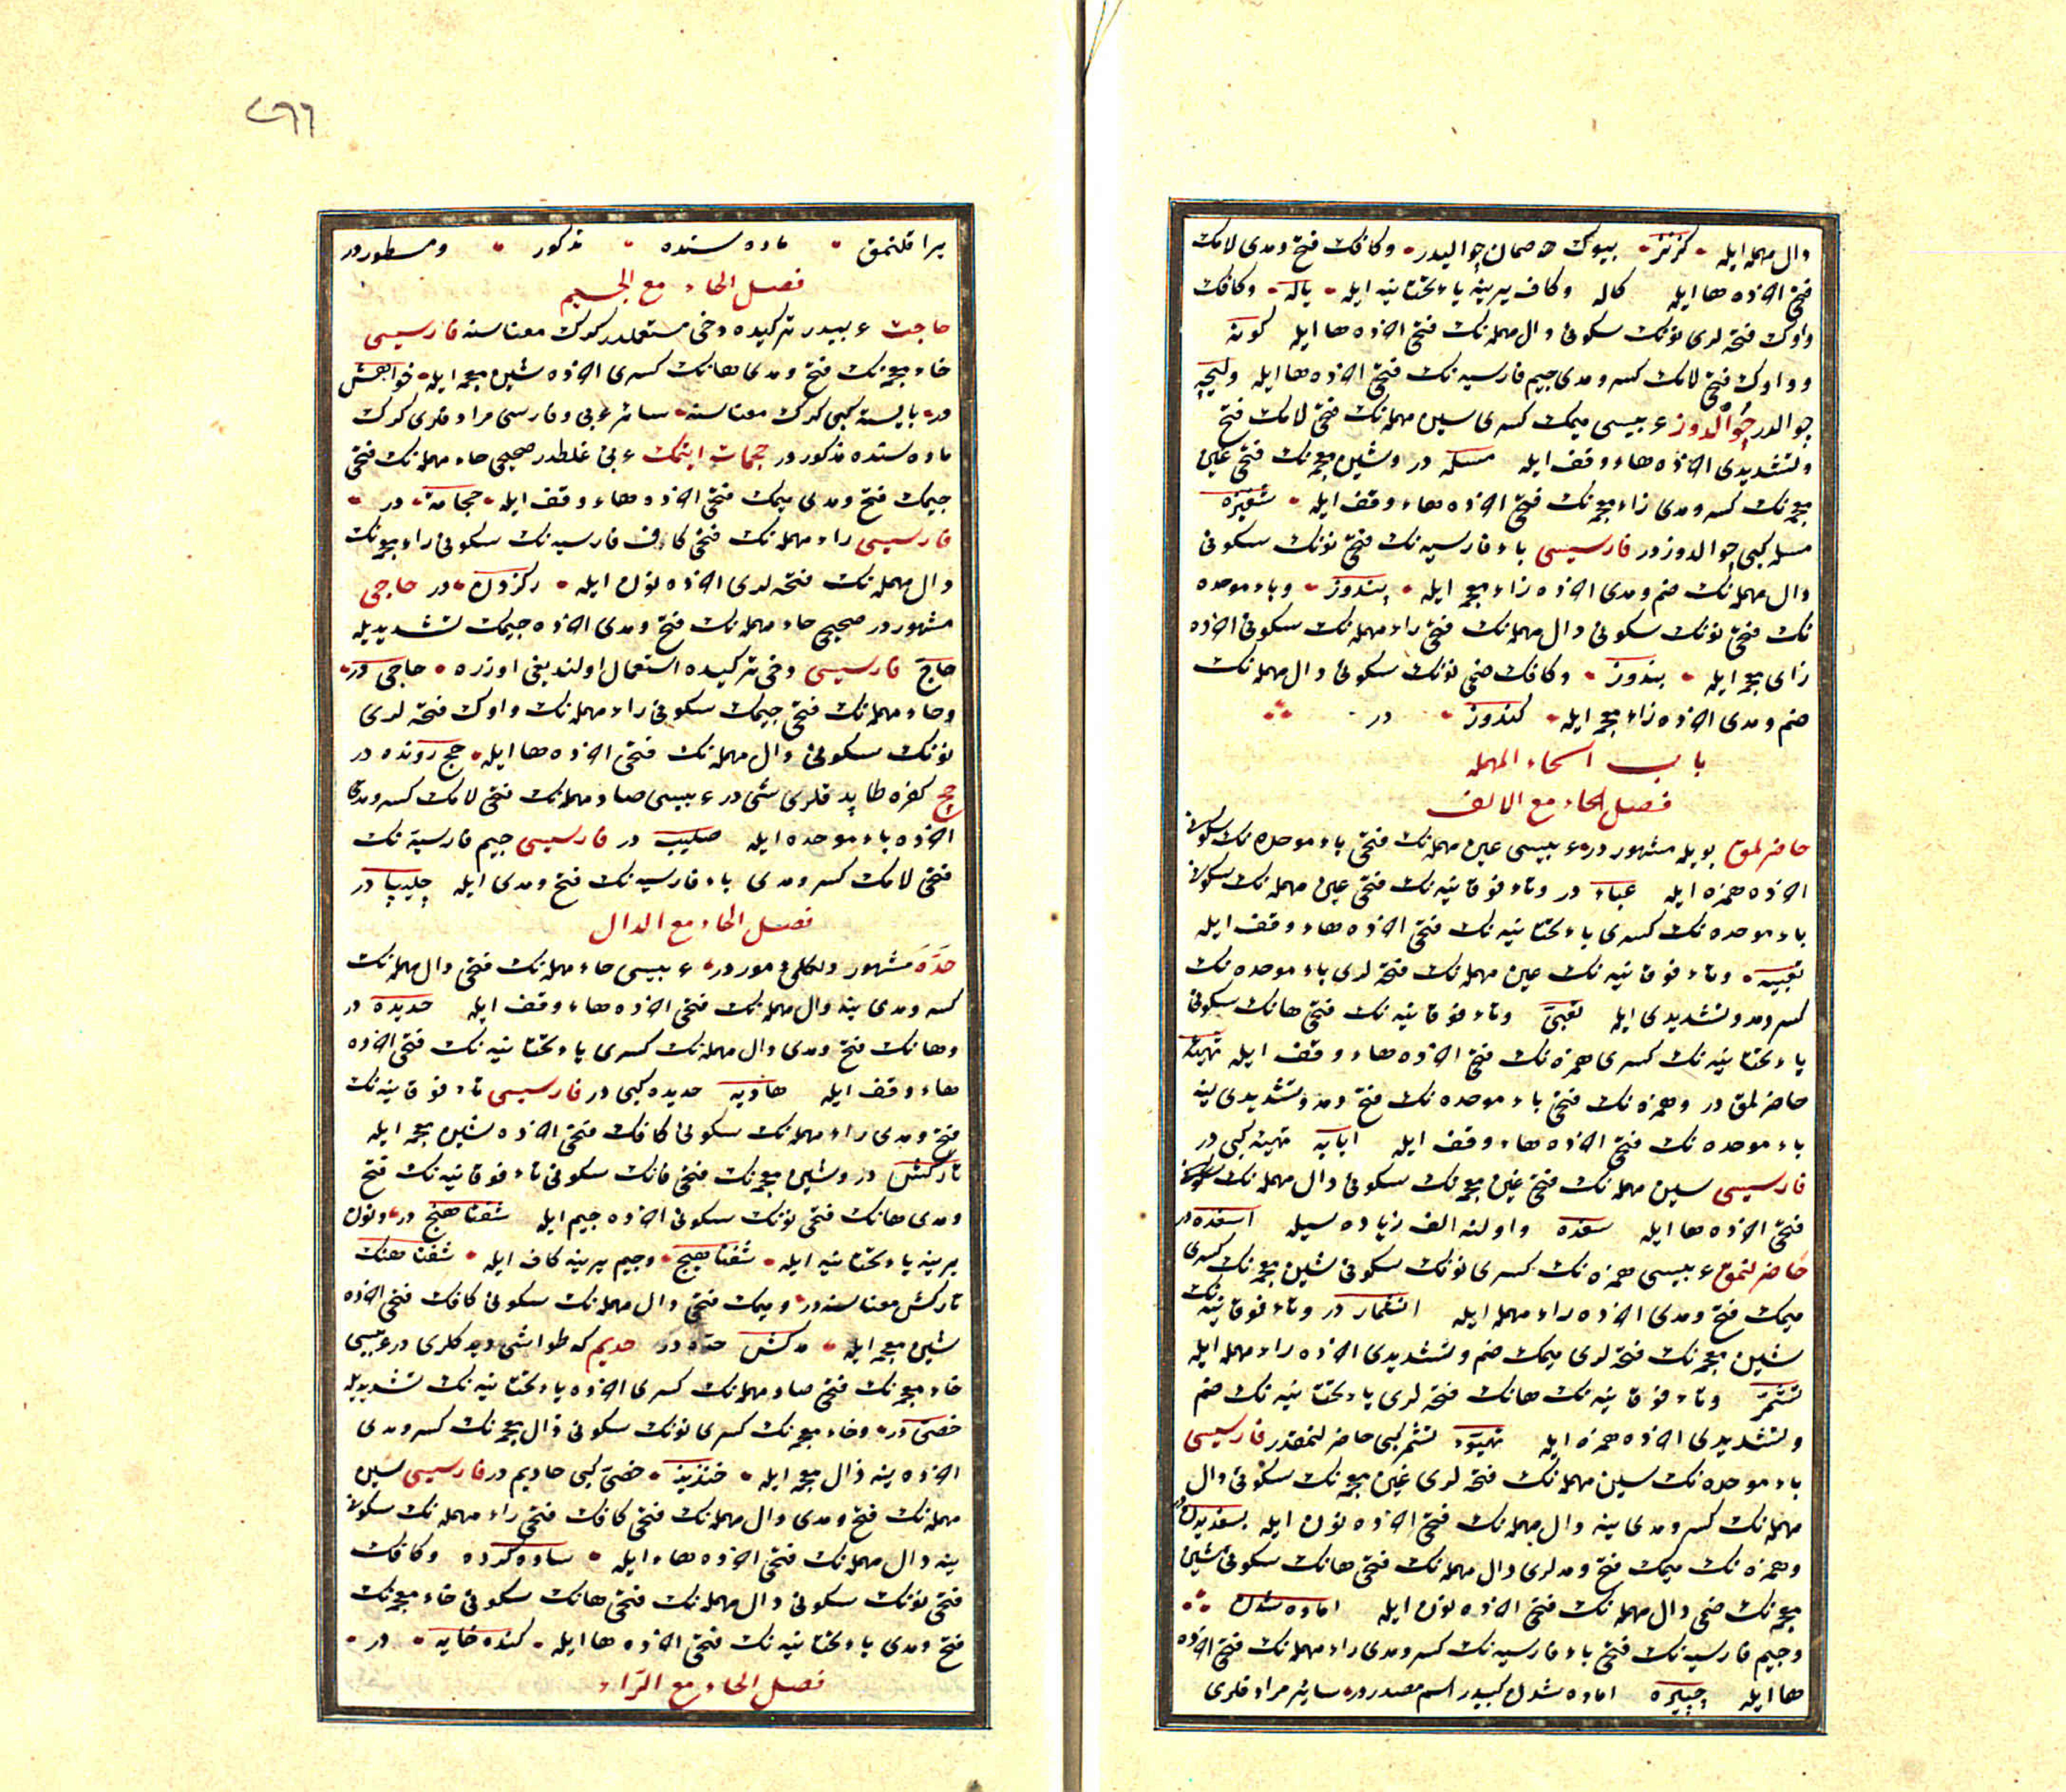 دال مهمله ایله كرنز بیوك صمان چوالیدر وكافك فتح ومدی لامك
فتحی آخرنده ها ایله كاله وكاف یرینه یاء تحتانیه ایله یاله وكافك
واوك فتحه لری نونك سكونی دال مهمله نك فتحی آخرنده ها ایله كونده
وواوك فتحی لامك كسر ومدی جیم فارسیه نك فتحی آخرنده ها ایله ولیچه
چوالدر چوالدوز عربیسی میمك كسری سین مهمله نك فتحی لامك فتح
وتشدیدی آخرنده هاء وقف ایله مسله در وشین معجمه نك فتحی غین
معجمه نك كسر ومدی زاء معجمه نك فتحی آخرنده هاء وقف ایله شغیزه
مسله كبی چوالدوزدر فارسیسی باء فارسیه نك فتحی نونك سكونی
دال مهمله نك ضم ومدی آخرنده زاء معجمه ایله پندوز وباء موحده
نك فتحی نونك سكونی دال مهمله نك فتحی راء مهمله نك سكونی آخرنده
زای معجمه ایله بندرز وكافك ضمی نونك سكونی دال مهمله نك
ضم ومدی آخرنده زاء معجمه ایله كندوز در
باب الحاء المهمله
فصل الحاء مع الالف
حاضرلمق بویله مشهوردر عربیسی عین مهمله نك فتحی باء موحده نك سكونی
آخرنده همزه ایله عباء در وتاء فوقانیه نك فتحی عین مهمله نك سكونی
باء موحده نك كسری یاء تحتانیه نك فتحی آخرنده هاء وقف ایله
تعبیه وتاء فوقانیه نك عین مهمله نك فتحه لری باء موحده نك
كسر ومد وتشدیدی ایله تعبی وتاء فوقانیه نك فتحی هانك سكونی
یاء تحتانیه نك كسری همزه نك فتحی آخرنده هاء وقف ایله تهیئه
حاضرلمق در وهمزه نك فتحی باء موحده نك فتح ومد وتشدیدی ینه
باء موحده نك فتحی آخرنده هاء وقف ایله ابابه تهیئه كبی در
فارسیسی سین مهمله نك فتحی غین معجمه نك سكونی دال مهمله نك
فتحی آخرنده ها ایله سغده واولنه الف زیاده سیله اسغده در
حاضرلنمق عربیسی همزه نك كسری نونك سكونی شین معجمه نك كسری
میمك فتح ومدی آخرنده راء مهمله ایله انشمار در وتاء فوقانیه نك
شین معجمه نك فتحه لری میمك ضم وتشدیدی آخرنده راء مهمله ایله
تشمر وتاء فوقانیه نك هانك فتحه لری یاء تحتانیه نك ضم
وتشدیدی آخرنده همزه ایله تهیؤ تشمر كبی حاضرلنمقدر فارسیسی
باء موحده نك سین مهمله نك فتحه لری غین معجمه نك سكونی دال
مهمله نك كسر ومدی ینه دال مهمله نك فتحی آخرنده نون ایله بسغدیدن
وهمزه نك میمك فتح ومدلری دال مهمله نك فتحی هانك سكونی شین
معجمه نك ضمی دال مهمله نك فتحی آخرنده نون ایله اماده شدن
وجیم فارسیه نك فتحی باء فارسیه نك كسر ومدی راء مهمله نك فتحی آخرنده
ها ایله چپیره اماده شدن كبیدر اسم مصدردر سائر مرادفلری
۲۶۶
یراقلنمق ماده سنده مذكور ومسطوردر
فصل الحاء مع الجیم
حاجت عربیدر تركیده دخی مستعملدر كرك معناسنه فارسیسی
خاء معجمه نك فتح ومدی هانك كسری آخرنده شین معجمه ایله خواهش
در بایسته كبی كرك معناسنه سائر عربی وفارسی مرادفلری كرك
ماده سنده مذكوردر حجامت ایتمك عربی غلطدر صحیحی حاء مهمله نك فتحی
جیمك فتح ومدی میمك فتحی آخرنده هاء وقف ایله حجامة در
فارسیسی راء مهمله نك فتحی كاف فارسیه نك سكونی زاء معجمه نك
دال مهمله نك فتحه لری آخرنده نون ایله ركزدن در حاجی
مشهوردر صحیحی حاء مهمله نك فتح ومدی آخرنده جیمك تشدیدیله
حاج فارسیسی دخی تركیده استعمال اولندیغی اوزره حاجی در
وحاء مهمله نك فتحی جیمك سكونی راء مهمله نك واوك فتحه لری
نونك سكونی دال مهمله نك فتحی آخرنده ها ایله حج رونده در
حاچ كفره طاپد قلری شی در عربیسی صاد مهمله نك فتحی لامك كسر ومدی
آخرنده باء موحده ایله صلیب در فارسیسی جیم فارسیه نك
فتحی لامك كسر ومدی باء فارسیه نك فتح ومدی ایله چلیپا در
فصل الحاء مع الدال
حده مشهور دلكلی دموردر عربیسی حاء مهمله نك فتحی دال مهمله نك
كسر ومدی ینه دال مهمله نك فتحی آخرنده هاء وقف ایله حدیده در
وهانك فتح ومدی دال مهمله نك كسری یاء تحتانیه نك فتحی آخرنده
هاء وقف ایله هادیه حدیده كبی در فارسیسی تاء فوقانیه نك
فتح ومدی راء مهمله نك سكونی كافك فتحی آخرنده شین معجمه ایله
تاركش در وشین معجمه نك فتحی فانك سكونی تاء فوقانیه نك فتح
ومدی هانك فتحی نونك سكونی آخرنده جیم ایله شفتاهنج در ونون
یرینه یاء تحتانیه ایله شفتاهیج وجیم یرینه كاف ایله شفتاهنك
تاركش معناسنه در ومیمك فتحی دال مهمله نك سكونی كافك فتحی آخرنده
شین معجمه ایله مدكش حده در حدیم كه طواشی دید كلری در عربیسی
خاء معجمه نك فتحی صاد مهمله نك كسری آخرنده یاء تحتانیه نك تشدیدیله
خصی در وخاء معجمه نك كسری نونك سكونی ذال معجمه نك كسر ومدی
آخرنده ینه ذال معجمه ایله خنذیذ خصی كبی حادیم در فارسیسی سین
مهمله نك فتح ومدی دال مهمله نك فتحی كافك فتحی راء مهمله نك سكونی
ینه دال مهمله نك فتحی آخرنده هاء ایله ساده كرده وكافك
فتحی نونك سكونی دال مهمله نك فتحی هانك سكونی خاء معجمه نك
فتح ومدی یاء تحتانیه نك فتحی آخرنده ها ایله كنده خایه در
فصل الحاء مع الراء